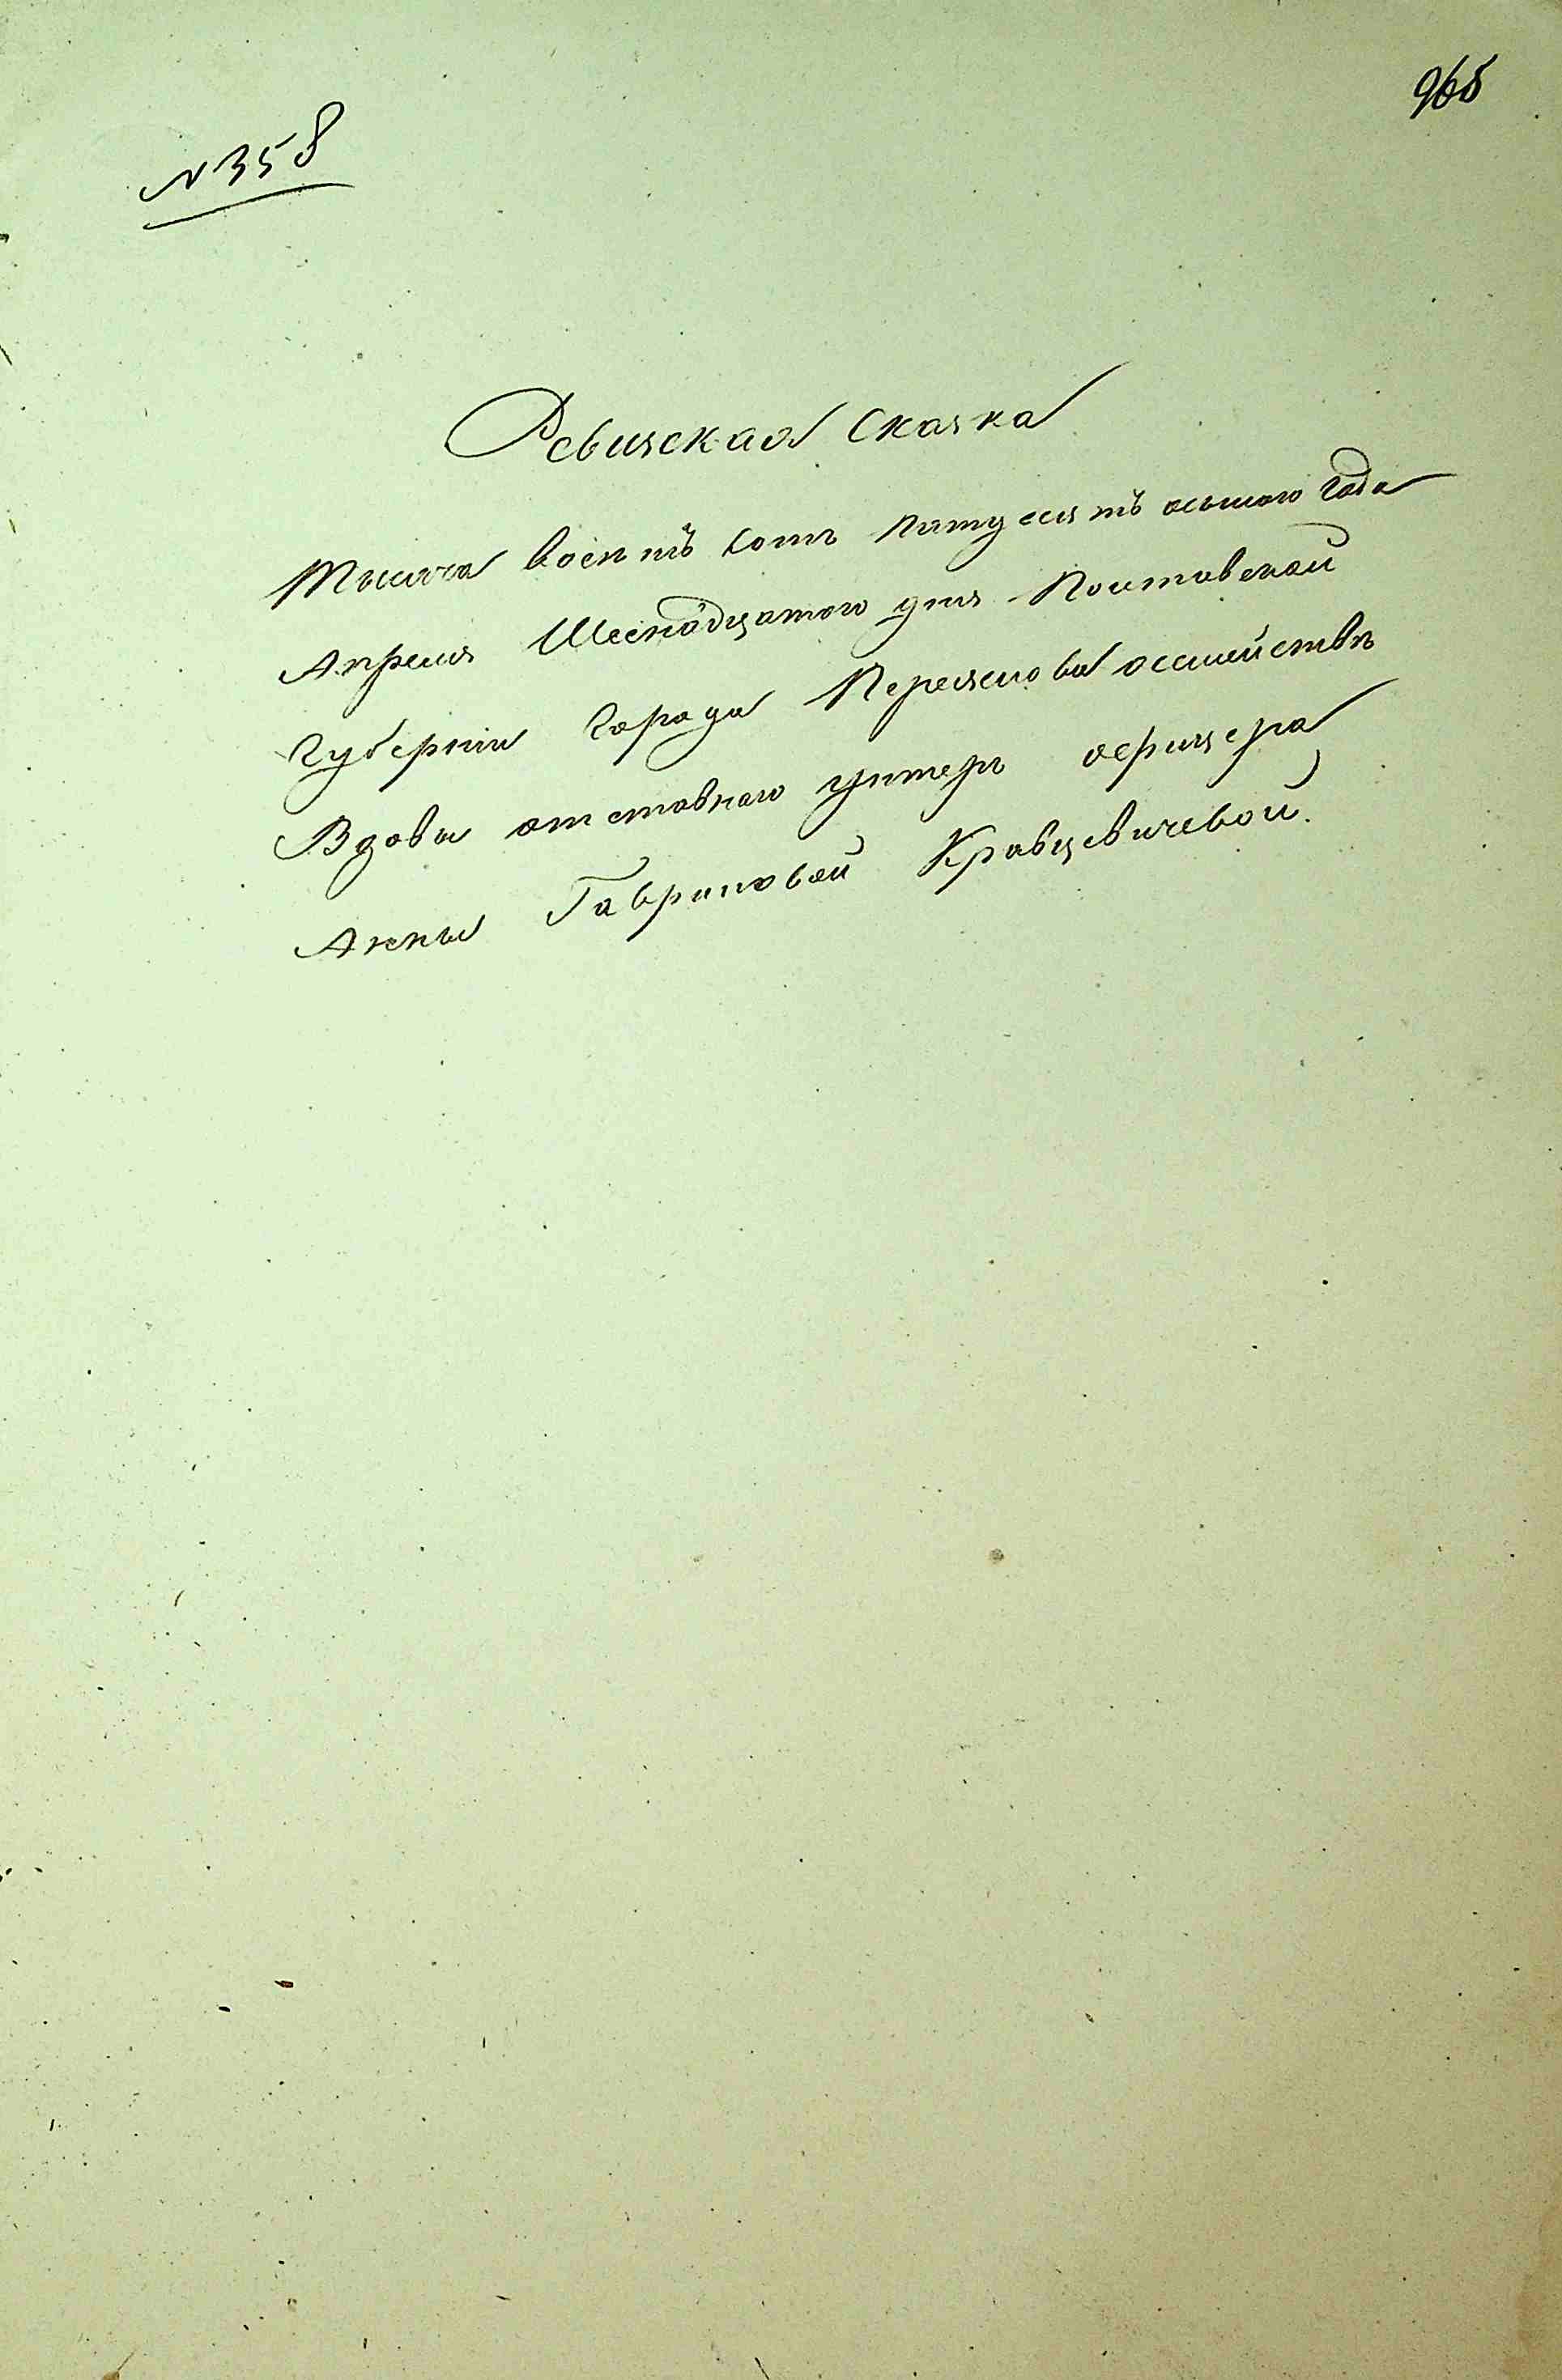 965
№ 358
Ревизская сказка
Тысяча восемъ сотъ пятдесятъ осьмого года
Апреля Шеснадцатого дня Полтавской
Губернии Города Переяслова осемействѣ
Вдовы отставнаго унтеръ офицера
Анны Гавриловой Кравцевичевой.